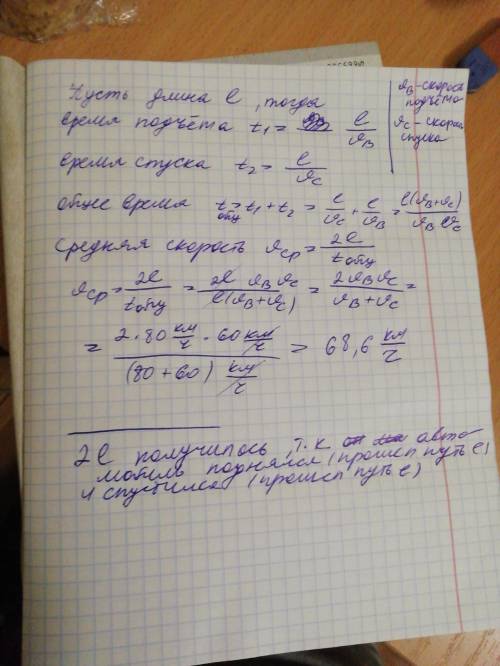 Пусть длина l, тогда
время подъёма t₁ = l/υ_B
υ_B - скорость
подъёма
υ_C - скорость
спуска
время спуска t₂ = l/υ_C
общее время t_общ = t₁ + t₂ = l/υ_C + l/υ_B = l(υ_B + υ_C)/υ_B υ_C
средняя скорость υ_ср = 2l/t_общ
υ_ср = 2l/t_общ = 2l υ_B υ_C/l(υ_B + υ_C) = 2υ_B υ_C/υ_B + υ_C =
= 2 · 80 км/ч · 60 км/ч / (80 + 60) км/ч = 68,6 км/ч
2l получилось, т.к авто
мобиль поднялся (прошел путь l)
и спустился (прошел путь l)